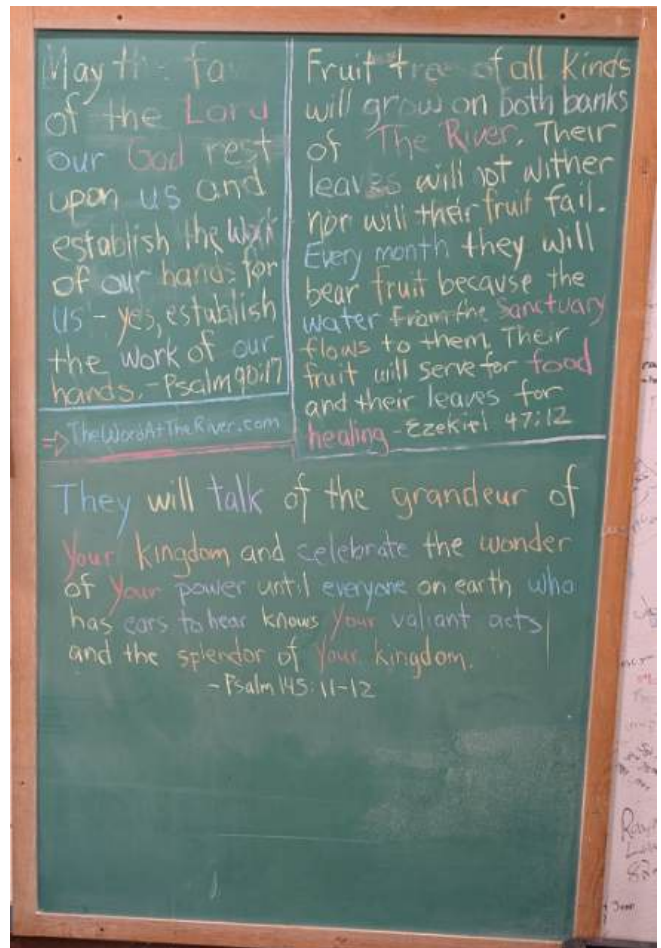 May the fa
of the Lord
our God rest
upon us and
establish the work
of our hands for
us - yes, establish
the work of our
hands. - Psalm 90:17
⇒ TheWordAtTheRiver.com
Fruit trees of all kinds
will grow on both banks
of The River. Their
leaves will not wither
nor will their fruit fail.
Every month they will
bear fruit because the
water from the Sanctuary
flows to them. Their
fruit will serve for food
and their leaves for
healing - Ezekiel 47:12
They will talk of the grandeur of
Your kingdom and celebrate the wonder
of Your power until everyone on earth who
has ears to hear knows Your valiant acts
and the splendor of Your kingdom.
- Psalm 145:11-12